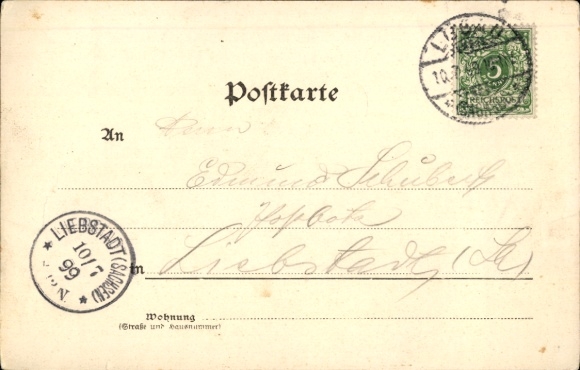 Postkarte
5
REICHSPOST
An
Herrn
Edmund Schubert
Postbote
in Liebstadt (Sa)
LIEBSTADT (SACHSEN)
10/7
99
N.
Wohnung
(Straße und Hausnummer)